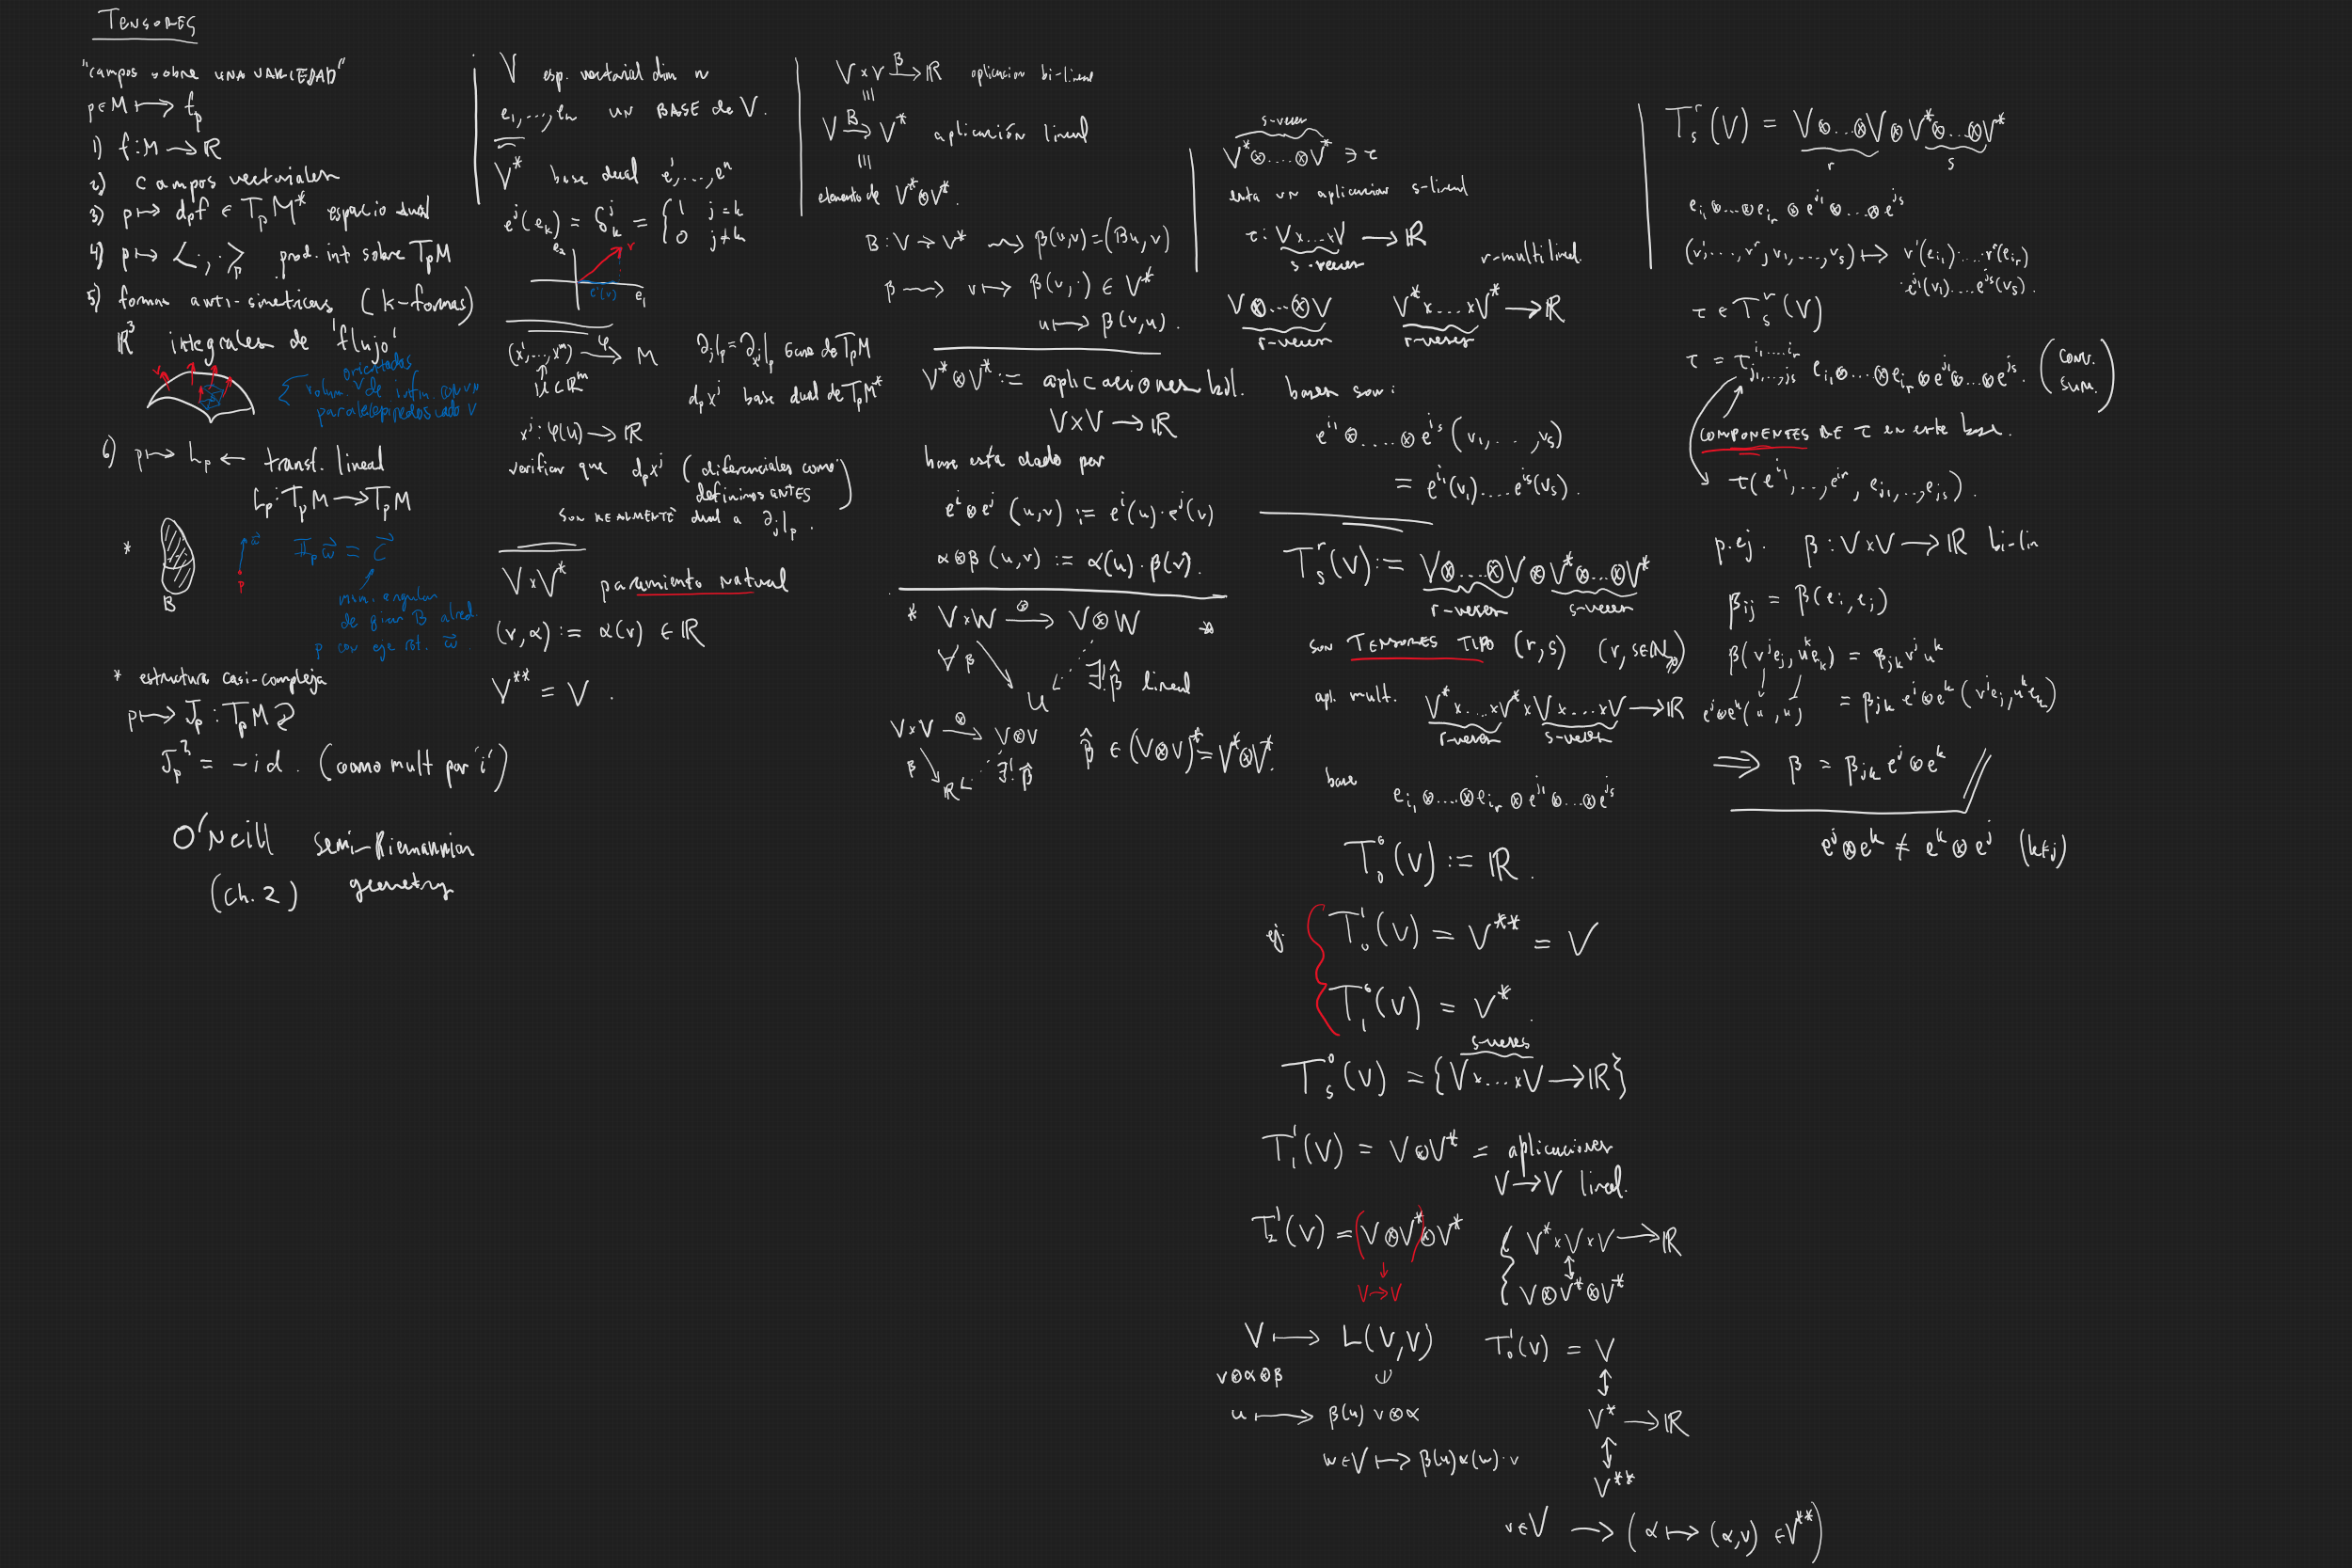 TENSORES
"campos sobre UNA VARIEDAD"
p∈M ⟼ t_p
1) f: M → ℝ
2) campos vectoriales
3) p ↦ d_p f ∈ T_p M* espacio dual
4) p ↦ <·,·>_p prod. int sobre T_p M
5) formas anti-simetricas (k-formas)
ℝ³ integrales de 'flujo'
orientados
volum. de infin.
paralelepipedos
6) p ↦ L_p ← transf. lineal
L_p: T_p M → T_p M
* B p ω⃗ I_p ω⃗ = C⃗
mom. angular
de girar B alred.
p con eje rot. ω⃗.
* estructura casi-compleja
p ↦ J_p: T_p M ↺
J_p² = -id. (como mult por i')
O'Neill semi-Riemannian
(ch. 2) geometry
V esp. vectorial dim n
e_1, ..., e_n UN BASE de V.
V* base dual e^1, ..., e^n
e^j(e_k) = δ^j_k = { 1 j=k
0 j≠k
e_2 v
e^1(v) e_1
(x^1, ..., x^m) →^φ M
U ⊂ ℝ^m
∂_j|_p = ∂_{x^j}|_p base de T_p M
d_p x^j base dual de T_p M*
x^j: φ(U) → ℝ
verificar que d_p x^j (diferenciales como
definimos ANTES)
SON REALMENTE dual a ∂_j|_p.
V×V* paramiento natural
(v, α) := α(v) ∈ ℝ
V** = V.
V×V →^β ℝ aplicacion bi-lineal
|||
V →^B V* aplicación lineal
|||
elemento de V*⊗V*.
B: V → V* ⇝ β(u,v) = (Bu, v)
β ⇝ v ↦ β(v,·) ∈ V*
u ↦ β(v,u).
V*⊗V* := aplicaciones bil.
V×V → ℝ
base esta dado por
e^i⊗e^j (u,v) := e^i(u)·e^j(v)
α⊗β (u,v) := α(u)·β(v).
* V×W →^⊗ V⊗W *
∀β ∃!β̂ lineal
U
V×V →^⊗ V⊗V
β ∃!β̂
ℝ
β̂ ∈ (V⊗V)* = V*⊗V*.
s-veces
V*⊗....⊗V* ∋ τ
esta un aplicacion s-lineal
τ: V×....×V → ℝ
s-veces
r-multilineal.
V⊗...⊗V V*×....×V* → ℝ
r-veces r-veces
bases son:
e^{i_1}⊗....⊗e^{i_s} (v_1, ..., v_s)
= e^{i_1}(v_1)....e^{i_s}(v_s).
T^r_s(V) := V⊗....⊗V⊗V*⊗...⊗V*
r-veces s-veces
son TENSORES TIPO (r,s) (r,s∈ℤ_{≥0})
apl. mult. V*×....×V*×V×....×V → ℝ
r-veces s-veces
base
e_{i_1}⊗....⊗e_{i_r}⊗e^{j_1}⊗...⊗e^{j_s}
T^0_0(V) := ℝ.
ej. T^1_0(V) = V** = V
T^0_1(V) = V*.
s-veces
T^0_s(V) = {V×....×V → ℝ}
T^1_1(V) = V⊗V* = aplicaciones
V → V lineal.
T^1_2(V) = (V⊗V*)⊗V*
↓
V → V
{ V*×V×V → ℝ
↕
V⊗V*⊗V*
V ⟼ L(V,V)
v⊗α⊗β
u ⟼ β(u) v⊗α
w∈V ↦ β(u)α(w)·v
T^1_0(V) = V
↕
V* → ℝ
↕
V**
v∈V → (α ↦ (α,v) ∈ V**)
T^r_s(V) = V⊗...⊗V⊗V*⊗...⊗V*
r s
e_{i_1}⊗...⊗e_{i_r}⊗e^{j_1}⊗...⊗e^{j_s}
(v^1, ..., v^r, v_1, ..., v_s) ↦ v^1(e_{i_1})·...·v^r(e_{i_r})
·e^{j_1}(v_1)....e^{j_s}(v_s).
τ ∈ T^r_s(V)
τ = τ^{i_1....i_r}_{j_1,...,j_s} e_{i_1}⊗....⊗e_{i_r}⊗e^{j_1}⊗...⊗e^{j_s}. (CONV. SUM.)
COMPONENTES DE τ en este base.
τ(e^{i_1}, ..., e^{i_r}, e_{j_1}, ..., e_{j_s}).
p.ej. β: V×V → ℝ bi-lin
β_{ij} = β(e_i, e_j)
β(v^j e_j, u^k e_k) = β_{jk} v^j u^k
e^j⊗e^k(v, u) = β_{jk} e^j⊗e^k (v^j e_j, u^k e_k)
⟹ β = β_{jk} e^j⊗e^k //
e^j⊗e^k ≠ e^k⊗e^j (k≠j)